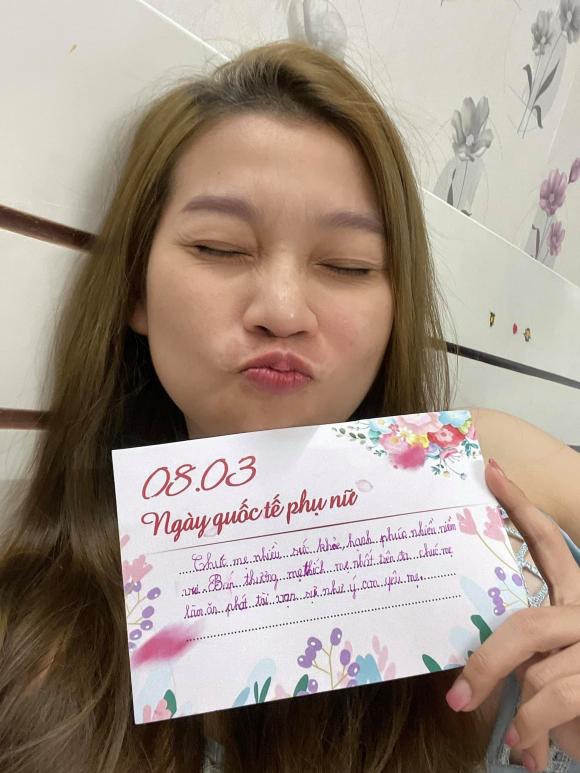 08.03
Ngày quốc tế phụ nữ
Chúc mẹ nhiều sức khỏe, hạnh phúc nhiều niềm
vui. Ban thương mẹ thích mẹ nhất trên đời chúc mẹ
làm ăn phát tài vạn sự như ý con yêu mẹ.